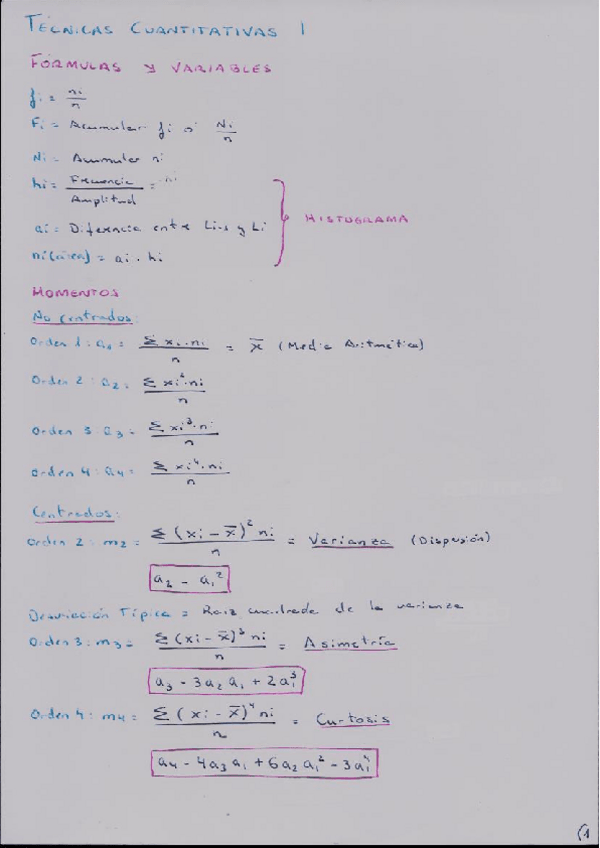 TÉCNICAS CUANTITATIVAS 1
FÓRMULAS Y VARIABLES
fi = ni/n
Fi = Acumular fi o Ni/n
Ni = Acumular ni
hi = Frecuencia/Amplitud =
ai = Diferencia entre Li-1 y Li
ni(área) = ai · hi
HISTOGRAMA
MOMENTOS
No centrados:
Orden 1: a₁ = Σ xi · ni / n = x̄ (Media Aritmética)
Orden 2: a₂ = Σ xi² · ni / n
Orden 3 a₃ = Σ xi³ · ni / n
Orden 4: a₄ = Σ xi⁴ · ni / n
Centrados:
Orden 2: m₂ = Σ (xi - x̄)² ni / n = Varianza (Dispersión)
a₂ - a₁²
Desviación Típica = Raiz cuadrada de la varianza
Orden 3: m₃ = Σ (xi - x̄)³ ni / n = Asimetría
a₃ - 3a₂a₁ + 2a₁³
Orden 4: m₄ = Σ (xi - x̄)⁴ ni / n = Curtosis
a₄ - 4a₃a₁ + 6a₂a₁² - 3a₁⁴
(1